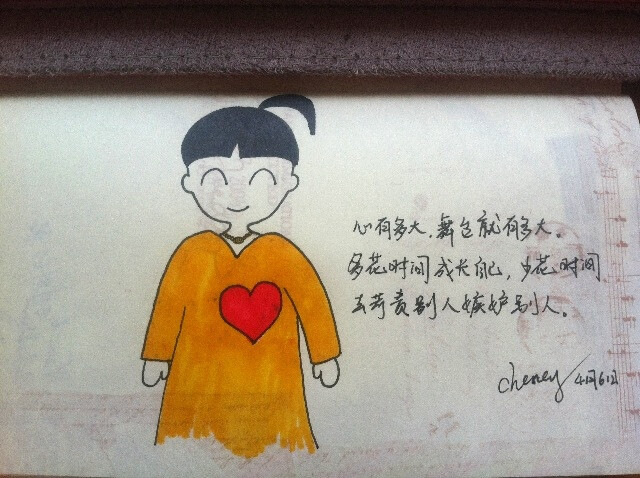 心有多大，舞台就有多大。
多花时间成长自己，少花时间
去苛责别人嫉妒别人。
cheney 4月6日